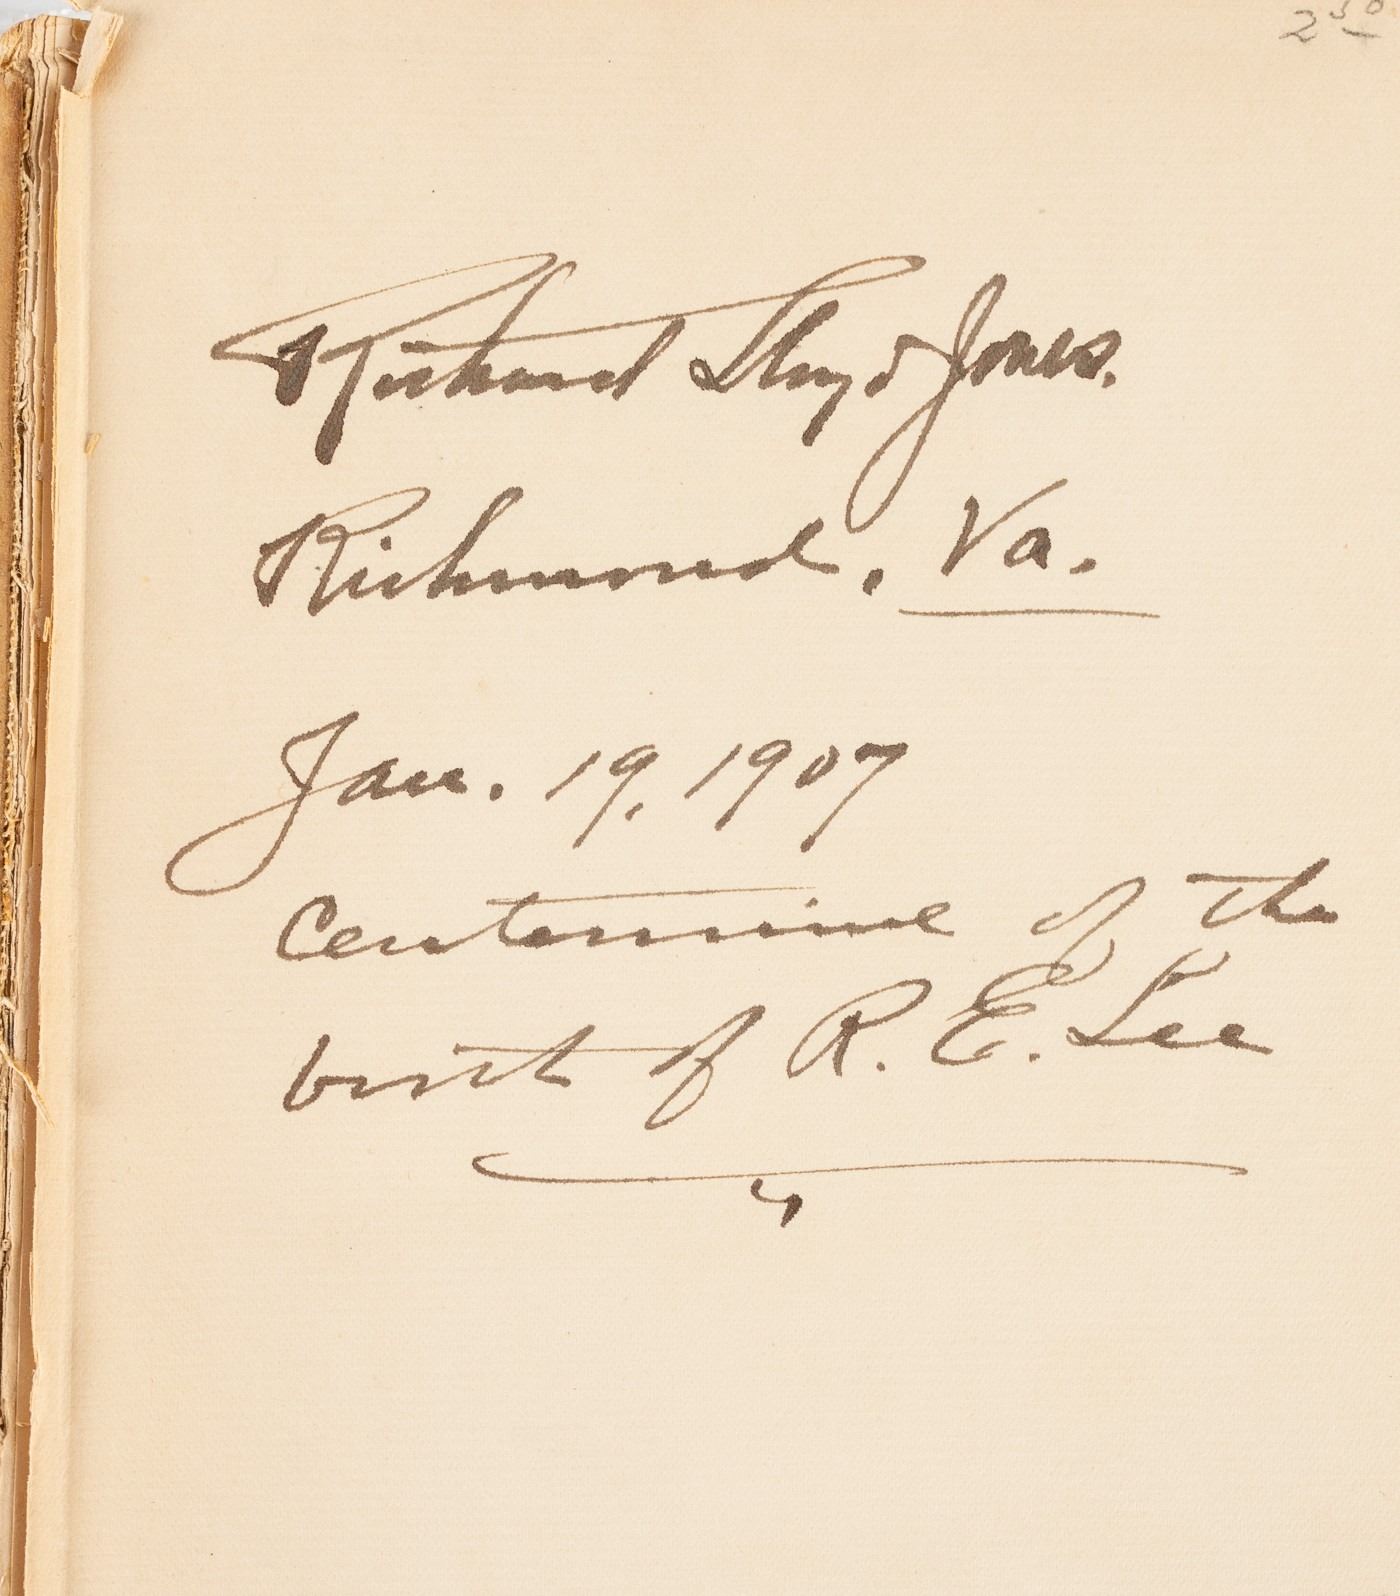 2 50
Richard Lloyd Jones.
Richmond, Va.
Jan. 19, 1907
Centennial of the
birth of R. E. Lee